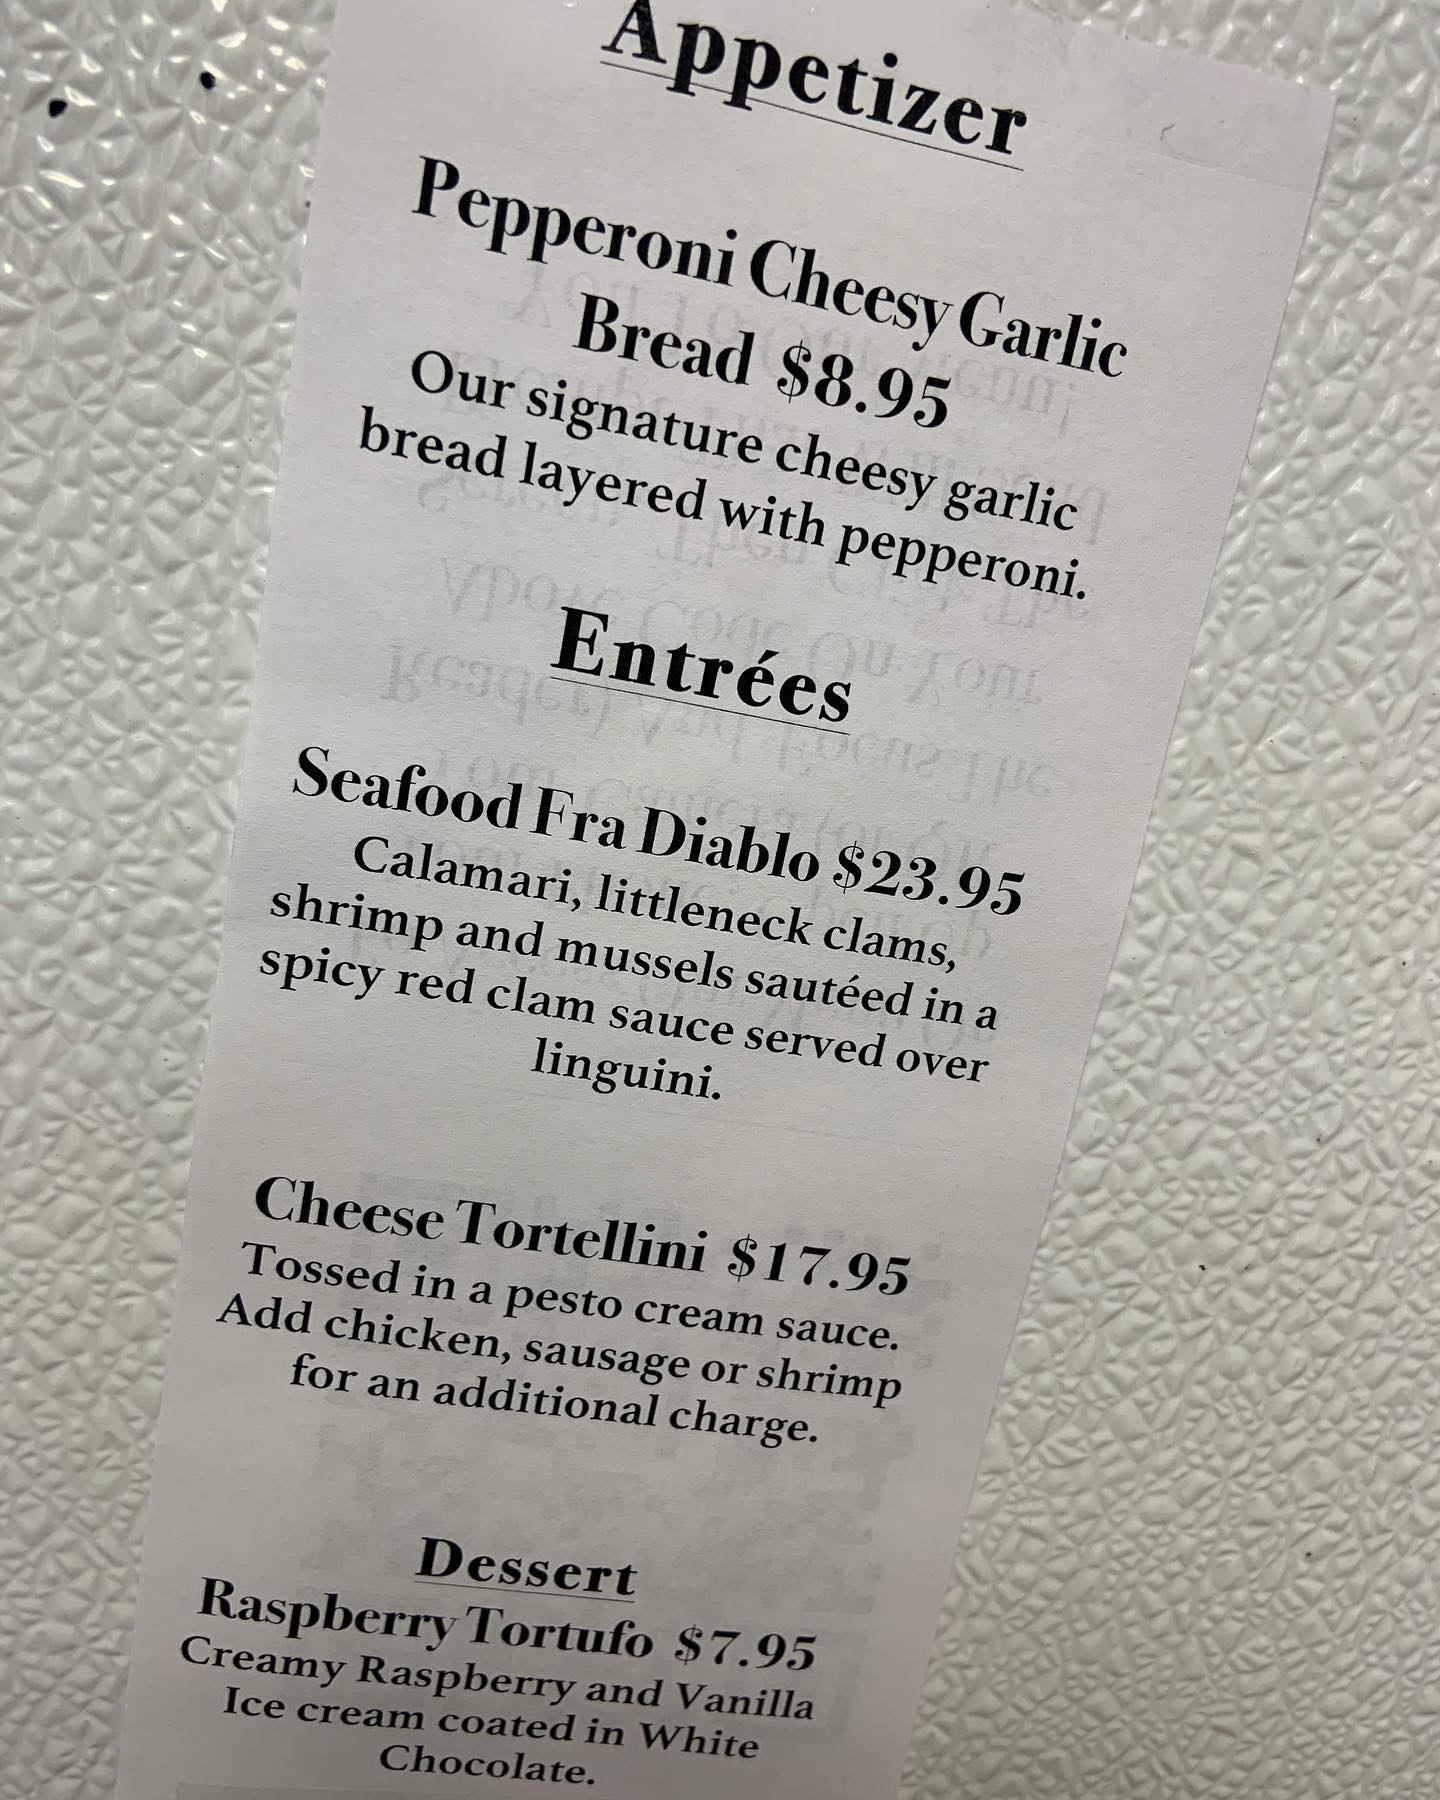 Appetizer
Pepperoni Cheesy Garlic
Bread $8.95
Our signature cheesy garlic
bread layered with pepperoni.
Entrées
Seafood Fra Diablo $23.95
Calamari, littleneck clams,
shrimp and mussels sautéed in a
spicy red clam sauce served over
linguini.
Cheese Tortellini $17.95
Tossed in a pesto cream sauce.
Add chicken, sausage or shrimp
for an additional charge.
Dessert
Raspberry Tortufo $7.95
Creamy Raspberry and Vanilla
Ice cream coated in White
Chocolate.